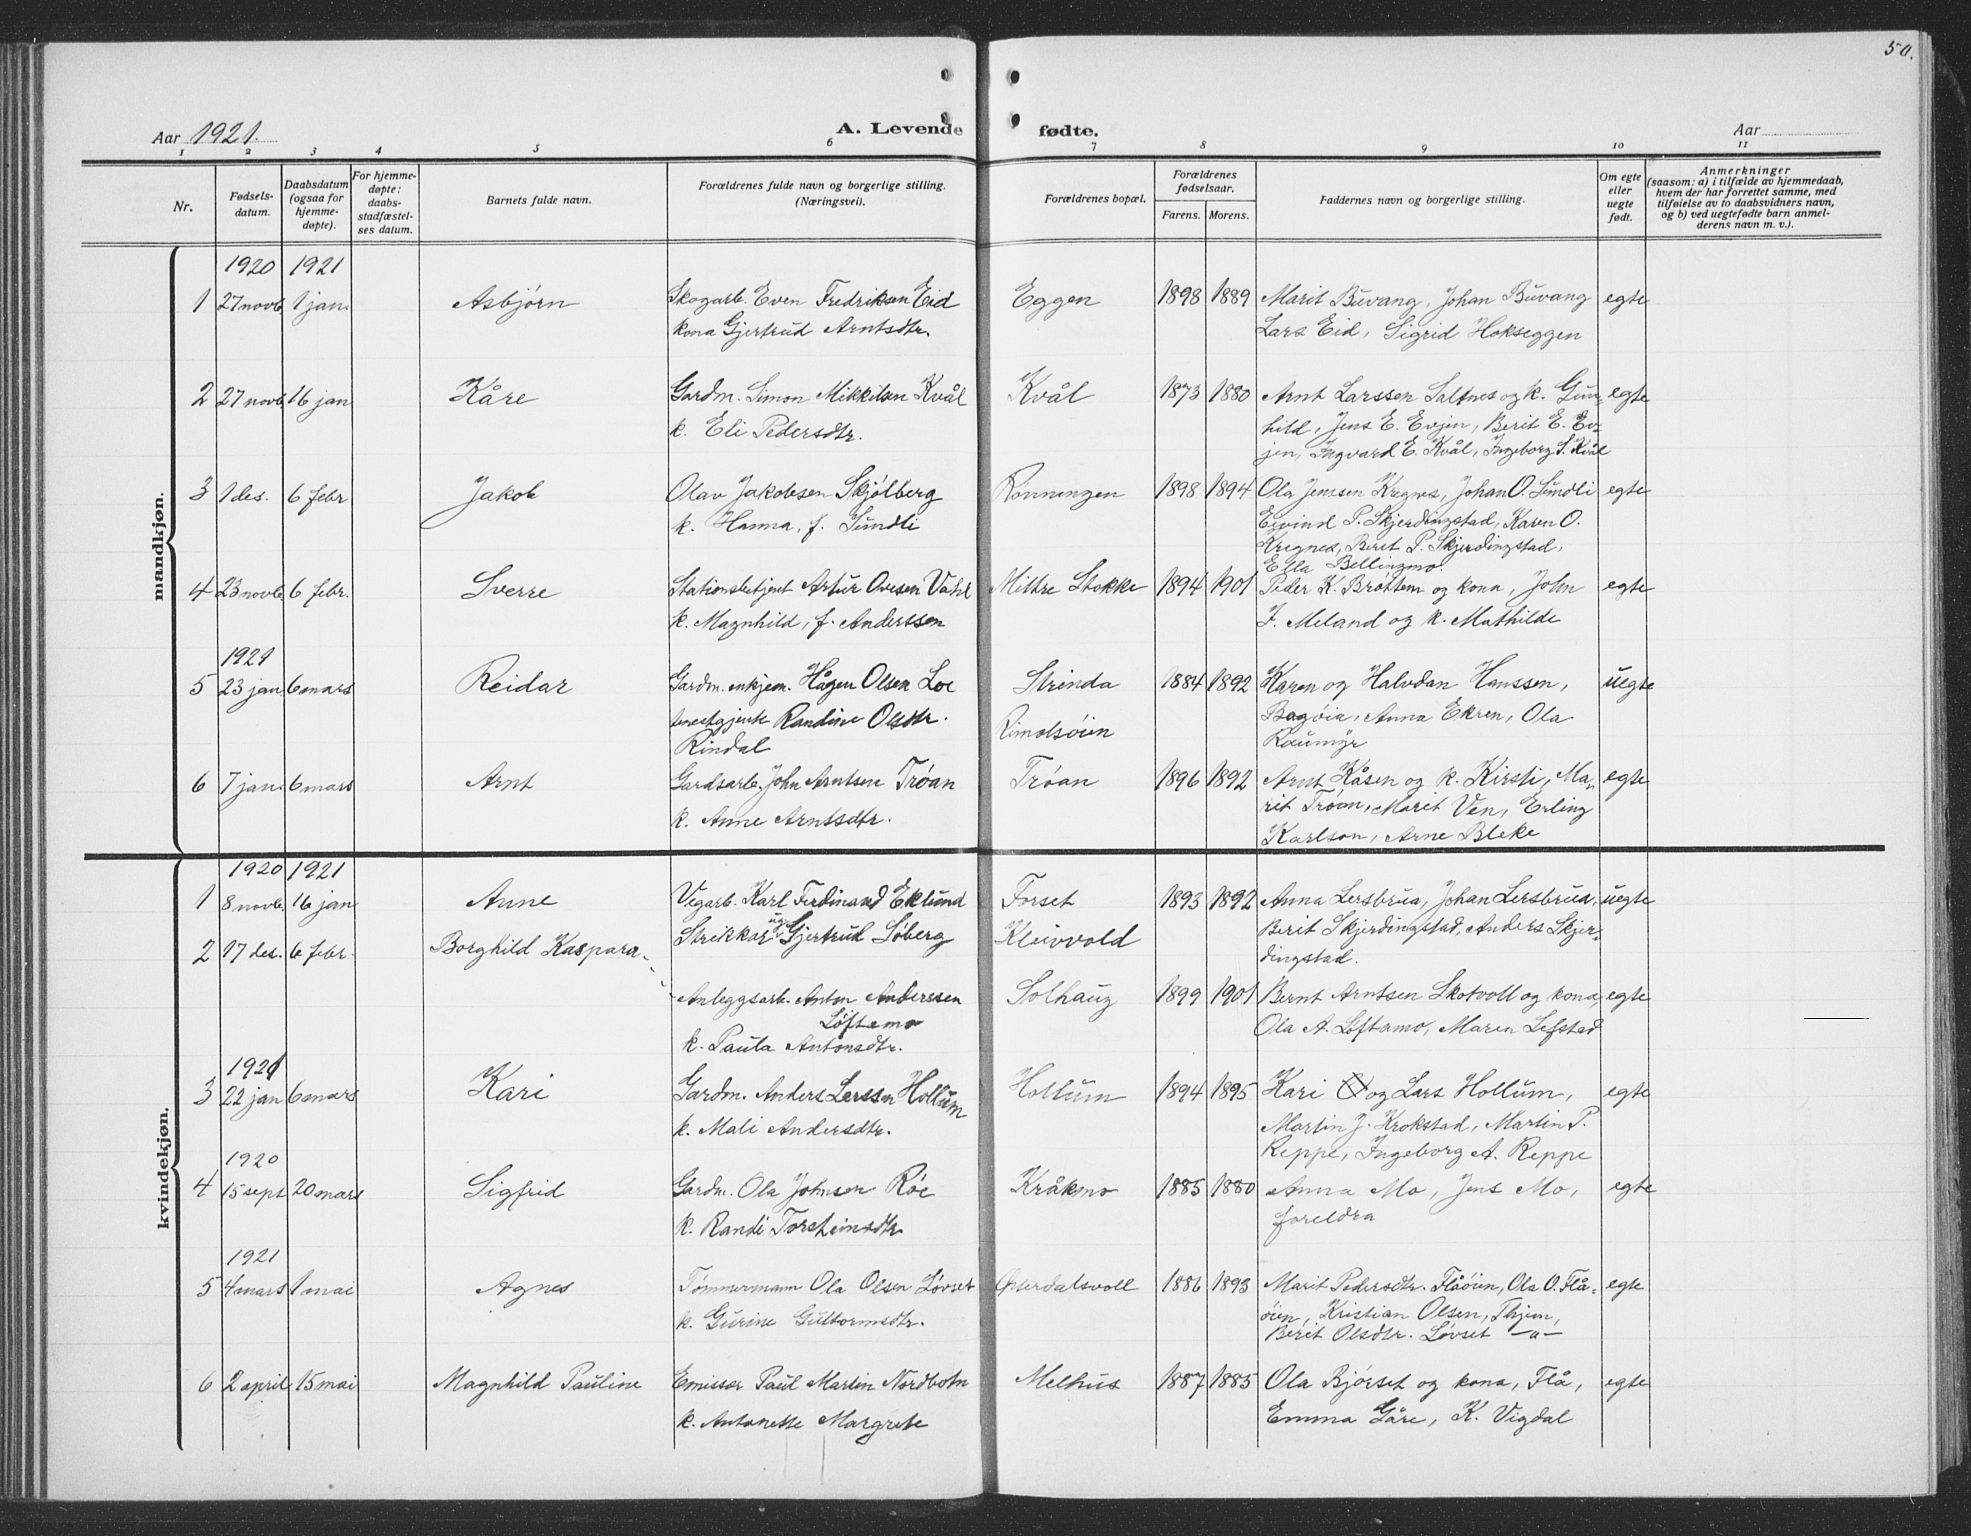 50.
Aar 1921. A. Levende fødte. Aar
1 2 3 4 5 6 7 8 9 10 11
Nr.
Fødsels-
datum.
Daabsdatum
(ogsaa for
hjemme-
døpte).
For hjemme-
døpte:
daabs-
stadfæstel-
ses datum.
Barnets fulde navn.
Forældrenes fulde navn og borgerlige stilling.
(Næringsvei).
Forældrenes bopæl.
Forældrenes
fødselsaar.
Farens. Morens.
Faddernes navn og borgerlige stilling.
Om egte
eller
uegte
født.
Anmerkninger
(saasom: a) i tilfælde av hjemmedaab,
hvem der har forrettet samme, med
tilføielse av to daabsvidners navn,
og b) ved uegtefødte barn anmel-
derens navn m. v.).
mandkjøn.
1920 1921
1 27 novb. 1 jan. Asbjørn Skogarb. Even Fredriksen Eid Eggen 1898 1889 Marit Buvang, Johan Buvang egte
kona Gjertrud Arntsdtr. Lars Eid, Sigrid Hokseggen
2 27 novb. 16 jan Kåre Gardm. Simon Mikkilsen Kvål Kvål 1873 1880 Arnt Larssen Saltnes og k. Gun- egte
k. Eli Pedersdtr. hild, Jens E. Evjen, Berit E. Ev-
jen, Ingvard E. Kvål, Ingeborg S. Kvål
3 1 des. 6 febr Jakob Olav Jakobsen Skjølberg Rønningen 1898 1894 Ola Jenssen Kregnes, Johan O. Sundli egte
k. Hanna, f. Sundli Eivind P. Skjerdingstad, Karen O.
Kregnes, Berit P. Skjerdingstad,
Ella Bellingmo
4 23 novb. 6 febr. Sverre Stationsbetjent Artur Ovesen Vahl Miltre Stokke 1894 1901 Peder K. Brøttem og kona, John egte
k. Magnhild, f. Anderssen J. Meland og k. Mathilde
1921
5 23 jan 6 mars Reidar Gardm. enkjem. Hågen Olsen Loe Strinda 1884 1892 Karen og Halvdan Hanssen, uegte
tenestgjente Randine Olsdtr. Rimolsøien Bagøia, Anna Ekren, Ola
Rindal Raumyr
6 7 jan. 6 mars Arnt Gardsarb. John Arntsen Trøan Trøan 1896 1892 Arnt Kåsen og k. Kirsti, Ma- egte
k. Anne Arntsdtr. rit Trøan, Marit Ven, Erling
Karlson, Arne Bleke
kvindekjøn.
1920 1921
1 8 novb. 16 jan Anne Vegarb. Karl Ferdinand Eklund Forset 1893 1892 Anna Lersbrua, Johan Lersbrua, uegte
Strikkar ug. Gjertrud Søberg Kleivvold Berit Skjerdingstad, Anders Skjer-
dingstad.
2 17 des. 6 febr. Borghild Kaspara
Anleggsarb. Anton Anderssen Solhaug 1899 1901 Bernt Arntsen Skotvoll og kona, egte
Løftamo
k. Paula Antonsdtr. Ola A. Løftamo, Maren Lefstad
1921
3 22 jan 6 mars Kari Gardm. Anders Larssen Hollum Hollum 1894 1895 Kari og Lars Hollum, egte
k. Mali Andersdtr. Martin J. Krokstad, Martin P.
Reppe, Ingeborg A. Reppe
1920
4 15 sept 20 mars Sigfrid Gardm. Ola Johnsen Røe Kråkmo 1885 1880 Anna Mo, Jens Mo, egte
k. Randi Torsteinsdtr foreldra
1921
5 4 mars 1 mai Agnes Tømmermann Ola Olsen Løvset Østerdalsvoll 1886 1893 Marit Pedersdtr. Flåøien, Ola O. Flå- egte
k. Gurine Guttormsdtr. øien, Kristian Olsen, Thjem,
Berit Olsdtr. Løvset —"—
6 2 april 15 mai Magnhild Pauline Emissær Paul Martin Nordbotn Melhus 1887 1885 Ola Bjørset og kona, Flå, egte
k. Antonette Margrete Emma Gåre, K. Vigdal